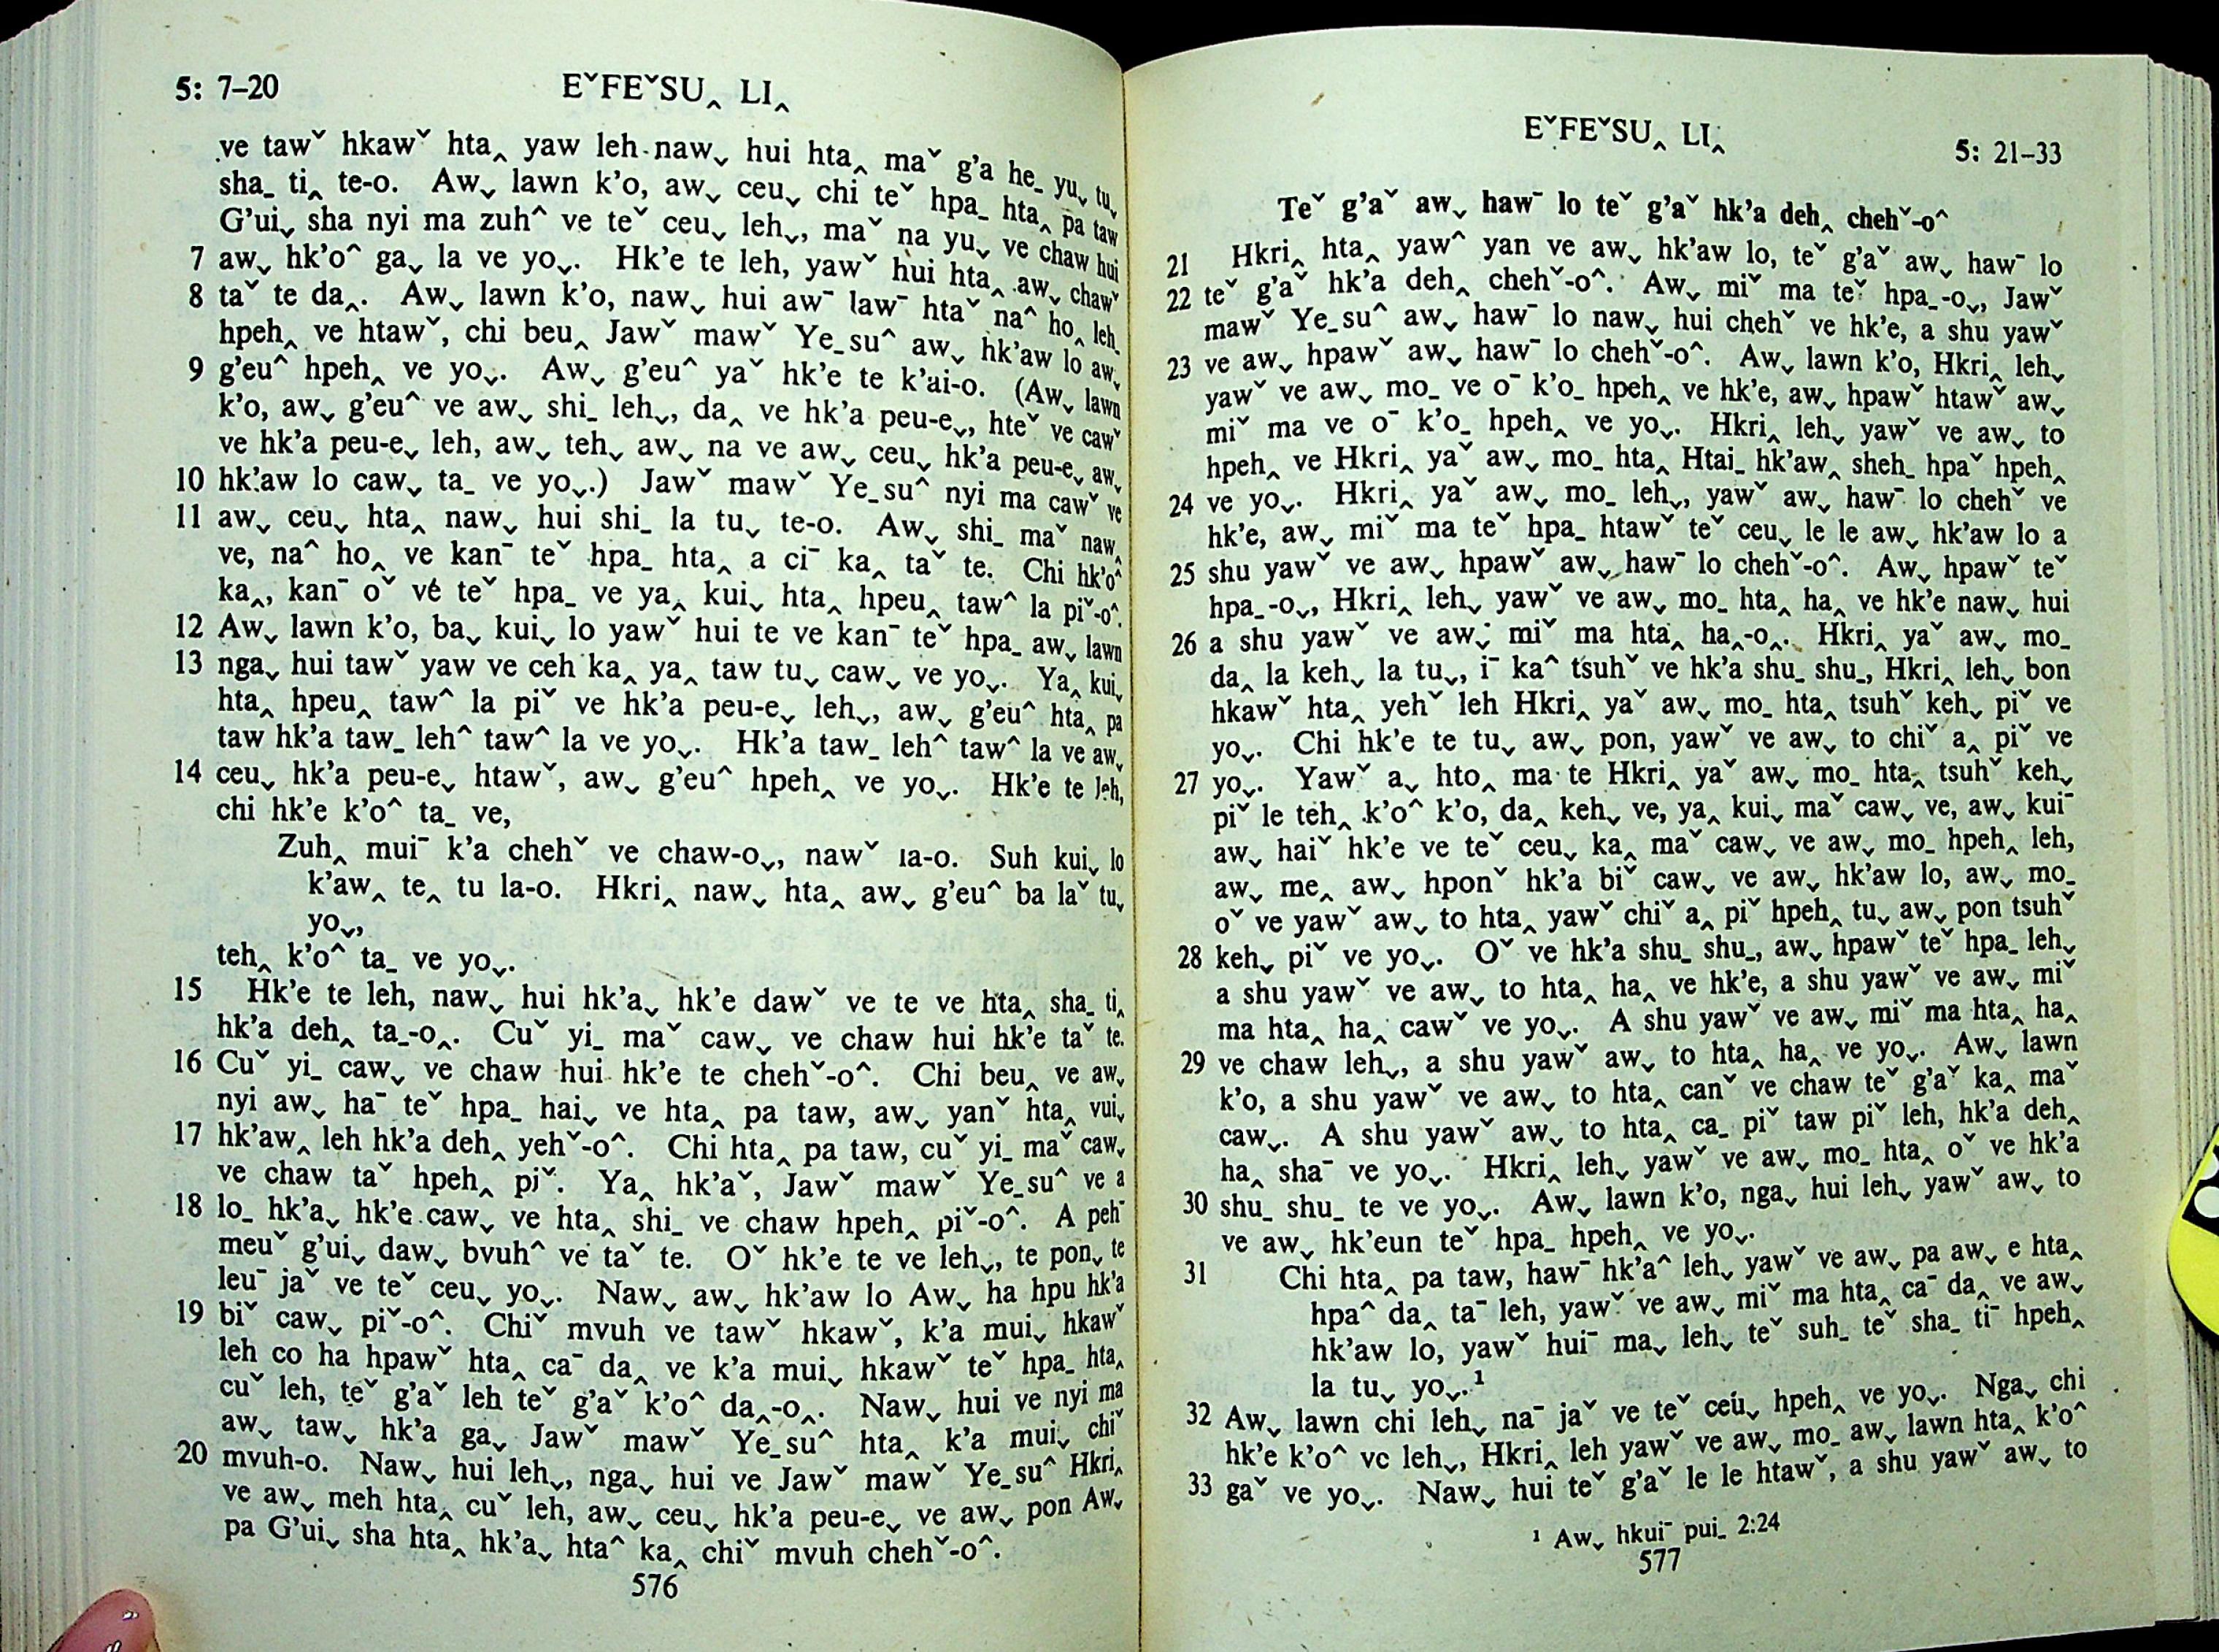 5: 7–20
EˇFEˇSU‸ LI‸
ve tawˇ hkawˇ hta‸ yaw leh naw˯ hui hta‸ maˇ g’a he˗ yu˯ tu˯
sha˗ ti‸ te-o. Aw˯ lawn k’o, aw˯ ceu˯ chi teˇ hpa˗ hta‸ pa taw
G’ui˯ sha nyi ma zuh^ ve teˇ ceu˯ leh˯, maˇ na yu˯ ve chaw hui
7 aw˯ hk’o^ ga˯ la ve yo˯. Hk’e te leh, yawˇ hui hta‸ aw˯ chawˇ
8 taˇ te da‸. Aw˯ lawn k’o, naw˯ hui awˉ lawˉ htaˇ na^ ho‸ leh˗
hpeh‸ ve htawˇ, chi beu‸ Jawˇ mawˇ Ye˗su^ aw˯ hk’aw lo aw˯
9 g’eu^ hpeh‸ ve yo˯. Aw˯ g’eu^ yaˇ hk’e te k’ai-o. (Aw˯ lawn
k’o, aw˯ g’eu^ ve aw˯ shi˗ leh˯, da‸ ve hk’a peu-e˯, hteˇ ve cawˇ
ve hk’a peu-e˯ leh, aw˯ teh˯ aw˯ na ve aw˯ ceu˯ hk’a peu-e˯ aw˯
10 hk’aw lo caw˯ ta˗ ve yo˯.) Jawˇ mawˇ Ye˗su^ nyi ma cawˇ ve
11 aw˯ ceu˯ hta‸ naw˯ hui shi˗ la tu˯ te-o. Aw˯ shi˗ maˇ naw‸
ve, na^ ho‸ ve kanˉ teˇ hpa˗ hta‸ a ciˉ ka‸ taˇ te. Chi hk’o^
ka‸, kanˉ oˇ ve teˇ hpa˗ ve ya‸ kui˯ hta‸ hpeu‸ taw^ la piˇ-o^.
12 Aw˯ lawn k’o, ba˯ kui˯ lo yawˇ hui te ve kanˉ teˇ hpa˗ aw˯ lawn
13 nga˯ hui tawˇ yaw ve ceh ka‸ ya‸ taw tu˯ caw˯ ve yo˯. Ya‸ kui˯
hta‸ hpeu‸ taw^ la piˇ ve hk’a peu-e˯ leh˯, aw˯ g’eu^ hta‸ pa
taw hk’a taw˗ leh^ taw^ la ve yo˯. Hk’a taw˗ leh^ taw^ la ve aw˯
14 ceu˯ hk’a peu-e˯ htawˇ, aw˯ g’eu^ hpeh‸ ve yo˯. Hk’e te leh,
chi hk’e k’o^ ta˗ ve,
Zuh‸ muiˉ k’a chehˇ ve chaw-o˯, nawˇ ta-o. Suh kui˯ lo
k’aw‸ te‸ tu la-o. Hkri‸ naw˯ hta‸ aw˯ g’eu^ ba laˇ tu˯
yo˯,
teh‸ k’o^ ta˗ ve yo˯.
15 Hk’e te leh, naw˯ hui hk’a˯ hk’e dawˇ ve te ve hta‸ sha˗ ti‸
hk’a deh‸ ta˗-o‸. Cuˇ yi˗ maˇ caw˯ ve chaw hui hk’e taˇ te.
16 Cuˇ yi˗ caw˯ ve chaw hui hk’e te chehˇ-o^. Chi beu‸ ve aw˯
nyi aw˯ haˉ teˇ hpa˗ hai˯ ve hta‸ pa taw, aw˯ yanˇ hta‸ vui˯
17 hk’aw‸ leh hk’a deh‸ yehˇ-o^. Chi hta‸ pa taw, cuˇ yi˗ maˇ caw˯
ve chaw taˇ hpeh‸ piˇ. Ya‸ hk’aˇ, Jawˇ mawˇ Ye˗su^ ve a
18 lo˗ hk’a˯ hk’e caw˯ ve hta‸ shi˗ ve chaw hpeh‸ piˇ-o^. A pehˉ
meuˇ g’ui˯ daw˯ bvuh^ ve taˇ te. Oˇ hk’e te ve leh˯, te pon˯ te
leuˉ jaˇ ve teˇ ceu˯ yo˯. Naw˯ aw˯ hk’aw lo Aw˯ ha hpu hk’a
19 biˇ caw˯ piˇ-o^. Chiˇ mvuh ve tawˇ hkawˇ, k’a mui˯ hkawˇ
leh co ha hpawˇ hta‸ caˉ da‸ ve k’a mui˯ hkawˇ teˇ hpa˗ hta‸
cuˇ leh, teˇ g’aˇ leh teˇ g’aˇ k’o^ da‸-o‸. Naw˯ hui ve nyi ma
aw˯ taw˯ hk’a ga˯ Jawˇ mawˇ Ye˗su^ hta‸ k’a mui˯ chiˇ
20 mvuh-o. Naw˯ hui leh˯, nga˯ hui ve Jawˇ mawˇ Ye˗su^ Hkri‸
ve aw˯ meh hta‸ cuˇ leh, aw˯ ceu˯ hk’a peu-e˯ ve aw˯ pon Aw˯
pa G’ui˯ sha hta‸ hk’a˯ hta^ ka‸ chiˇ mvuh chehˇ-o^.
576
EˇFEˇSU‸ LI‸
5: 21–33
Teˇ g’aˇ aw˯ hawˉ lo teˇ g’aˇ hk’a deh‸ chehˇ-o^
21 Hkri‸ hta‸ yaw^ yan ve aw˯ hk’aw lo, teˇ g’aˇ aw˯ hawˉ lo
22 teˇ g’aˇ hk’a deh‸ chehˇ-o^. Aw˯ miˇ ma teˇ hpa˗-o˯, Jawˇ
mawˇ Ye˗su^ aw˯ hawˉ lo naw˯ hui chehˇ ve hk’e, a shu yawˇ
23 ve aw˯ hpawˇ aw˯ hawˉ lo chehˇ-o^. Aw˯ lawn k’o, Hkri‸ leh˯
yawˇ ve aw˯ mo˗ ve oˉ k’o˗ hpeh‸ ve hk’e, aw˯ hpawˇ htawˇ aw˯
miˇ ma ve oˉ k’o˗ hpeh‸ ve yo˯. Hkri‸ leh˯ yawˇ ve aw˯ to
hpeh‸ ve Hkri‸ yaˇ aw˯ mo˗ hta‸ Htai˗ hk’aw‸ sheh˗ hpaˇ hpeh‸
24 ve yo˯. Hkri‸ yaˇ aw˯ mo˗ leh˯, yawˇ aw˯ hawˉ lo chehˇ ve
hk’e, aw˯ miˇ ma teˇ hpa˗ htawˇ teˇ ceu˯ le le aw˯ hk’aw lo a
25 shu yawˇ ve aw˯ hpawˇ aw˯ hawˉ lo chehˇ-o^. Aw˯ hpawˇ teˇ
hpa˗-o˯, Hkri‸ leh˯ yawˇ ve aw˯ mo˗ hta‸ ha‸ ve hk’e naw˯ hui
26 a shu yawˇ ve aw˯ miˇ ma hta‸ ha‸-o‸. Hkri‸ yaˇ aw˯ mo˗
da‸ la keh˯ la tu˯, iˉ ka^ tsuhˇ ve hk’a shu˗ shu˗, Hkri‸ leh˯ bon
hkawˇ hta‸ yehˇ leh Hkri‸ yaˇ aw˯ mo˗ hta‸ tsuhˇ keh˯ piˇ ve
yo˯. Chi hk’e te tu˯ aw˯ pon, yawˇ ve aw˯ to chiˇ a‸ piˇ ve
27 yo˯. Yawˇ a˯ hto‸ ma te Hkri‸ yaˇ aw˯ mo˗ hta‸ tsuhˇ keh˯
piˇ le teh‸ k’o^ k’o, da‸ keh˯ ve, ya‸ kui˯ maˇ caw˯ ve, aw˯ kuiˉ
aw˯ haiˇ hk’e ve teˇ ceu˯ ka‸ maˇ caw˯ ve aw˯ mo˗ hpeh‸ leh,
aw˯ me‸ aw˯ hponˇ hk’a biˇ caw˯ ve aw˯ hk’aw lo, aw˯ mo˗
oˇ ve yawˇ aw˯ to hta‸ yawˇ chiˇ a‸ piˇ hpeh‸ tu˯ aw˯ pon tsuhˇ
28 keh˯ piˇ ve yo˯. Oˇ ve hk’a shu˗ shu˗, aw˯ hpawˇ teˇ hpa˗ leh˯
a shu yawˇ ve aw˯ to hta‸ ha‸ ve hk’e, a shu yawˇ ve aw˯ miˇ
ma hta‸ ha‸ cawˇ ve yo˯. A shu yawˇ ve aw˯ miˇ ma hta‸ ha‸
29 ve chaw leh˯, a shu yawˇ aw˯ to hta‸ ha‸ ve yo˯. Aw˯ lawn
k’o, a shu yawˇ ve aw˯ to hta‸ canˇ ve chaw teˇ g’aˇ ka‸ maˇ
caw˯. A shu yawˇ aw˯ to hta‸ ca˗ piˇ taw piˇ leh, hk’a deh‸
ha‸ shaˉ ve yo˯. Hkri‸ leh˯ yawˇ ve aw˯ mo˗ hta‸ oˇ ve hk’a
30 shu˗ shu˗ te ve yo˯. Aw˯ lawn k’o, nga˯ hui leh˯ yawˇ aw˯ to
ve aw˯ hk’eun teˇ hpa˗ hpeh‸ ve yo˯.
31 Chi hta‸ pa taw, hawˉ hk’a^ leh˯ yawˇ ve aw˯ pa aw˯ e hta‸
hpa^ da‸ taˉ leh, yawˇ ve aw˯ miˇ ma hta‸ caˉ da‸ ve aw˯
hk’aw lo, yawˇ huiˉ ma˯ leh˯ teˇ suh˗ teˇ sha˗ tiˉ hpeh‸
la tu˯ yo˯.¹
32 Aw˯ lawn chi leh˯ naˉ jaˇ ve teˇ ceu˯ hpeh‸ ve yo˯. Nga˯ chi
hk’e k’o^ ve leh˯, Hkri‸ leh yawˇ ve aw˯ mo˗ aw˯ lawn hta‸ k’o^
33 gaˇ ve yo˯. Naw˯ hui teˇ g’aˇ le le htawˇ, a shu yawˇ aw˯ to
¹ Aw˯ hkuiˉ pui˗ 2:24
577